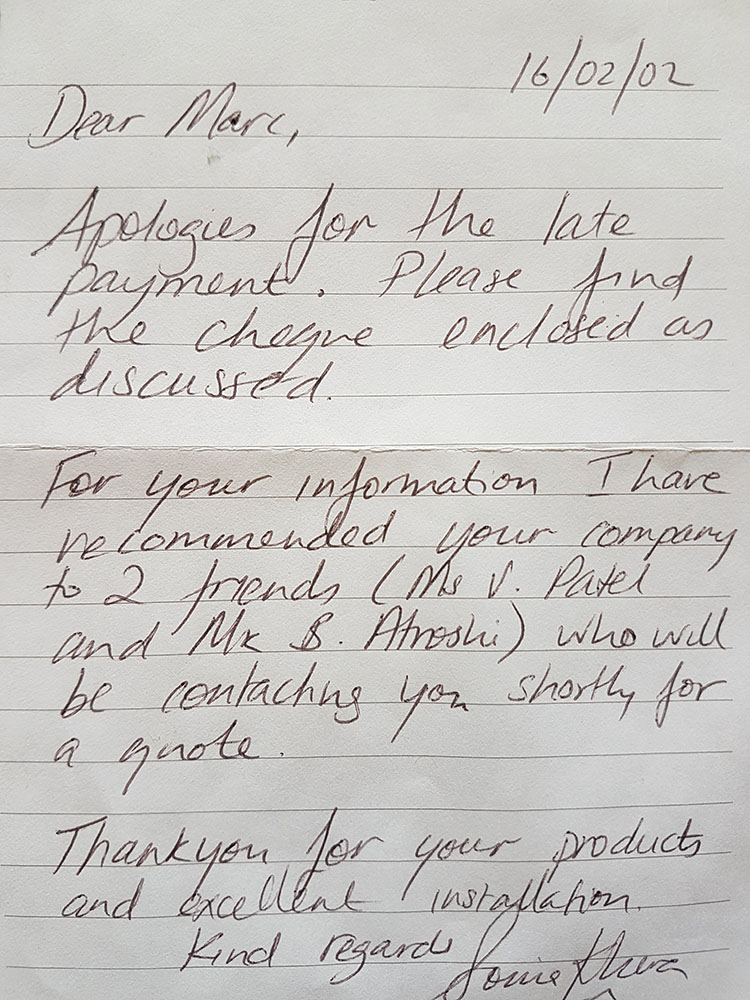 16/02/02
Dear Marc,
Apologies for the late
payment. Please find
the cheque enclosed as
discussed.
For your information I have
recommended your company
to 2 friends (Ms V. Patel
and Mr B. Atroshi) who will
be contacting you shortly for
a quote.
Thankyou for your products
and excellent installation.
Kind regards